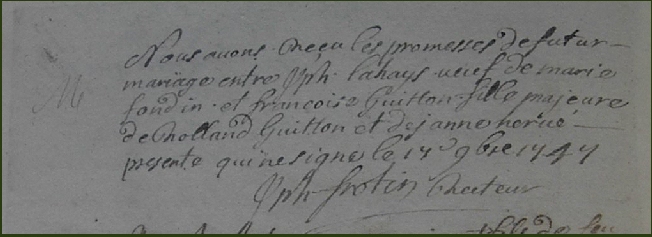 Nous avons Reçu les promesses de futur
mariage entre Jph Lahays veuf de marie
fondin et francoise Guitton fille majeure
de Rolland Guitton et de janne hervé
presente qui ne signe le 9bre 1747
Jph frotin Recteur
fille de feu